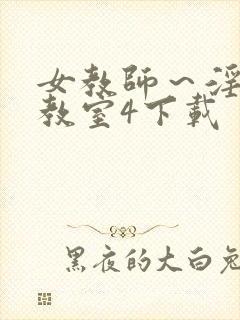 女教師～淫
教室4下載
黑夜的大白兔